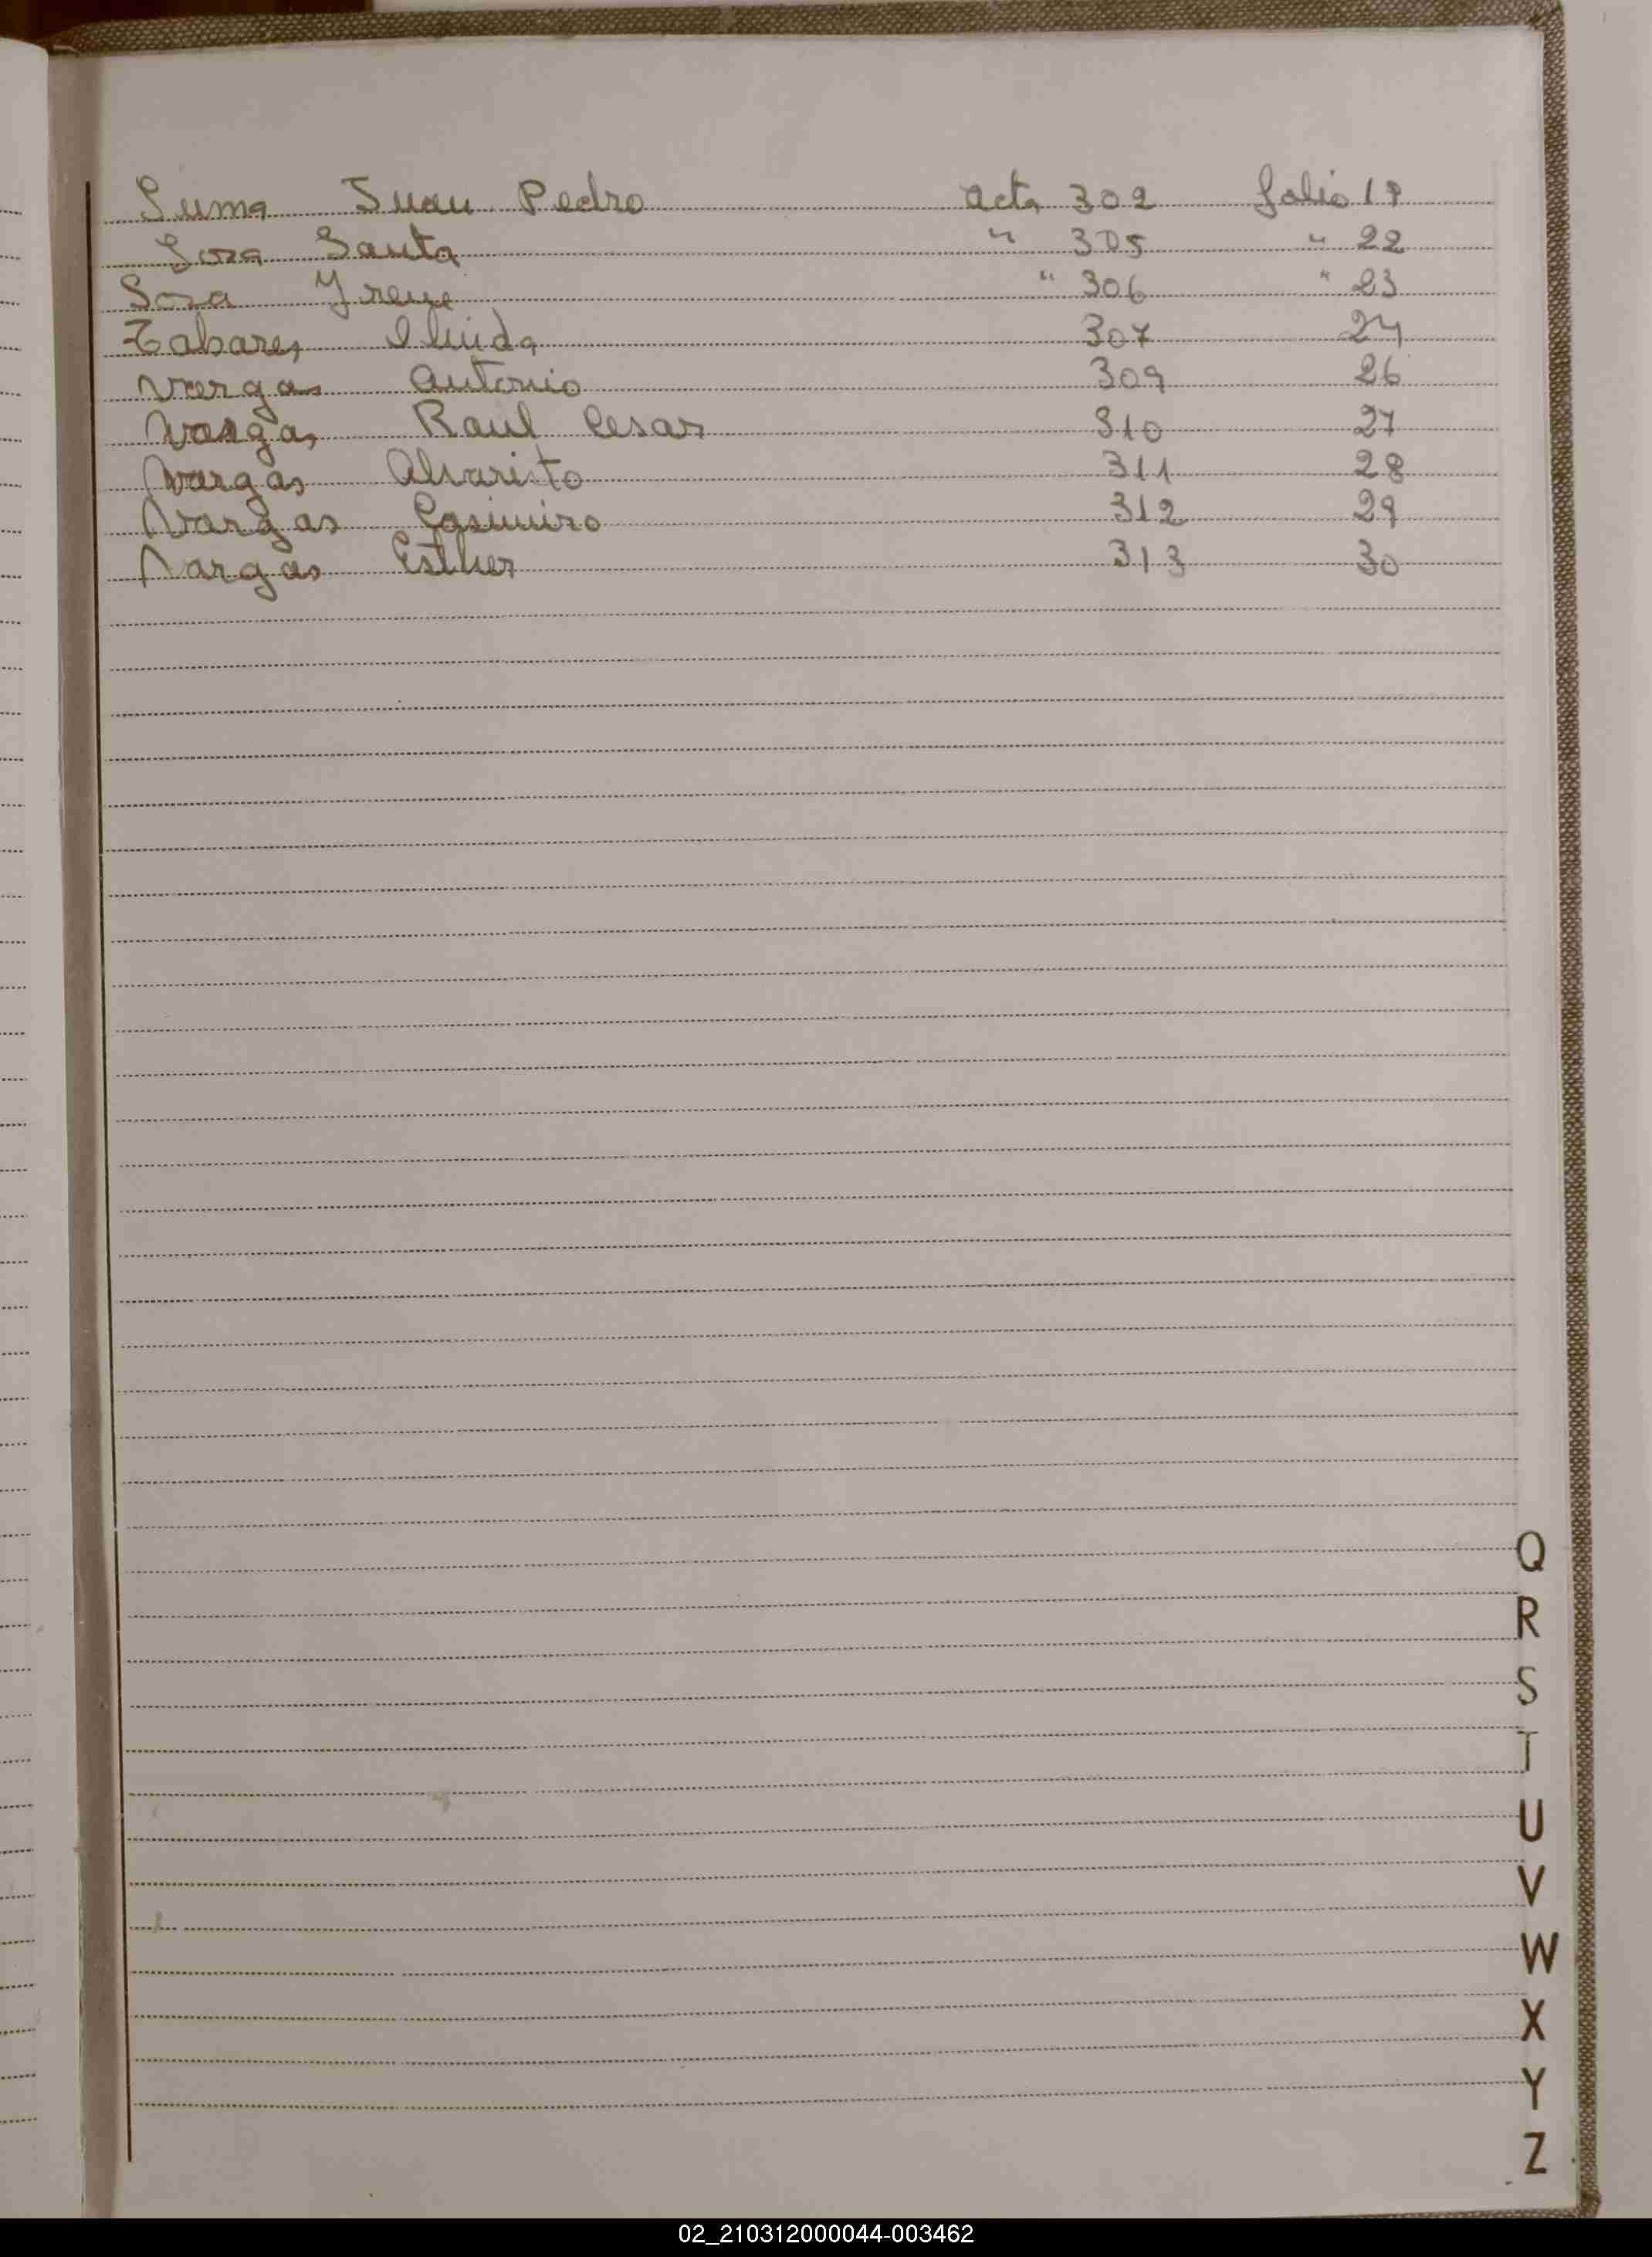 Suma Juan Pedro acta 302 folio 19
Sosa Santa " 305 " 22
Sosa Yrene " 306 " 23
Tabares 307 24
Vargas Antonio 309 26
Vargas Raul Cesar 310 27
Vargas Alvaristo 311 28
Vargas Casimiro 312 29
Vargas Esther 313 30
Q
R
S
T
U
V
W
X
Y
Z
02_210312000044-003462